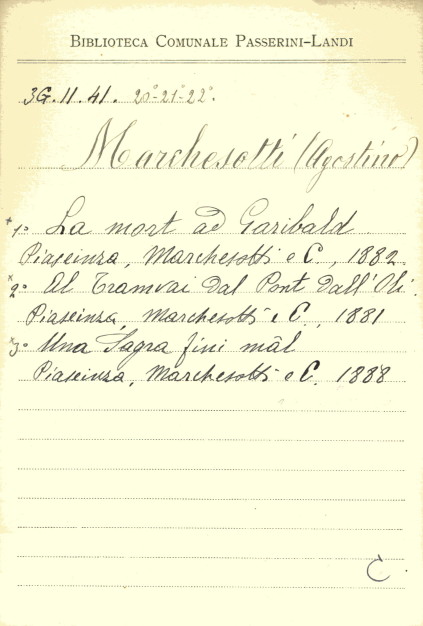 BIBLIOTECA COMUNALE PASSERINI-LANDI
3G.II.41. 20°-21°-22°.
Marchesotti (Agostino)
*1° La mort ad Garibald.
Piaseinza, Marchesotti e C., 1882.
*2° Al Tramvai dal Pont dall'Oli.
Piaseinza, Marchesotti e C., 1881
*3° Una Sagra fini mâl
Piaseinza, Marchesotti e C. 1888
C